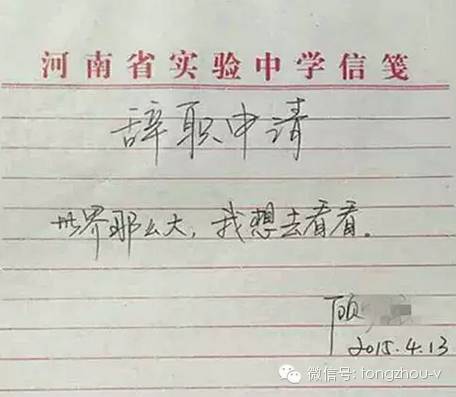 河南省实验中学信笺
辞职申请
世界那么大，我想去看看。
顾
2015.4.13
微信号: tongzhou-v